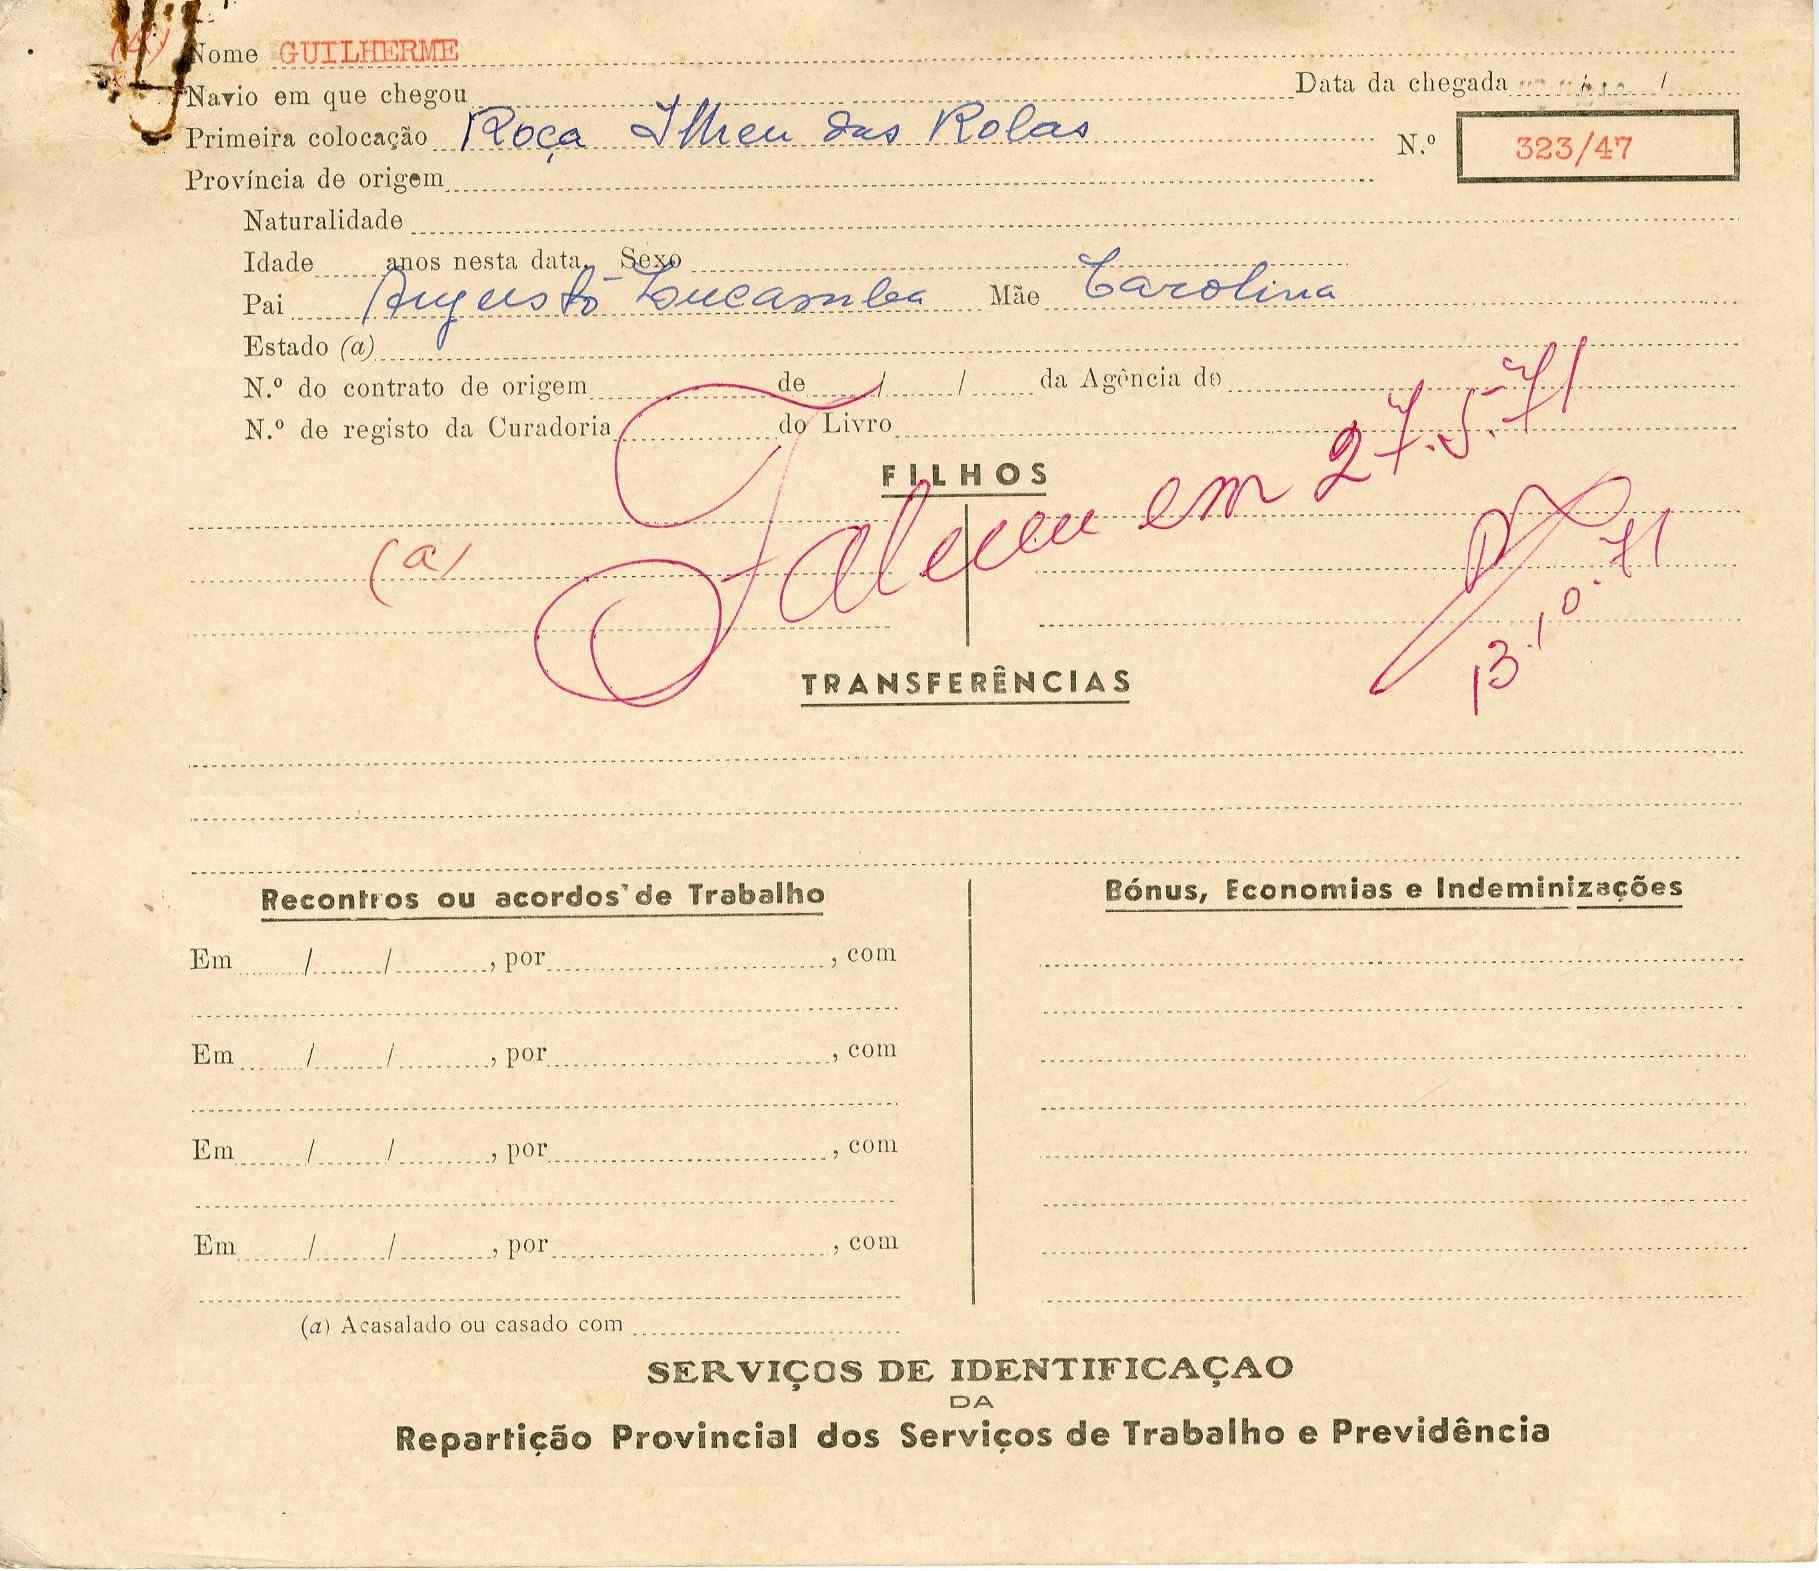 (a) Nome GUILHERME
Navio em que chegou Data da chegada / /
Primeira colocação Roça Ilheu das Rolas N.º 323/47
Província de origem
Naturalidade
Idade anos nesta data. Sexo
Pai Augusto Lucamba Mãe Carolina
Estado (a)
N.º do contrato de origem de / / da Agência de
N.º de registo da Curadoria do Livro
FILHOS
(a) Faleceu em 27.5.71
13.10.71
TRANSFERÊNCIAS
Recontros ou acordos de Trabalho
Em / / , por , com
Em / / , por , com
Em / / , por , com
Em / / , por , com
(a) Acasalado ou casado com
Bónus, Economias e Indeminizações
SERVIÇOS DE IDENTIFICAÇAO
DA
Repartição Provincial dos Serviços de Trabalho e Previdência